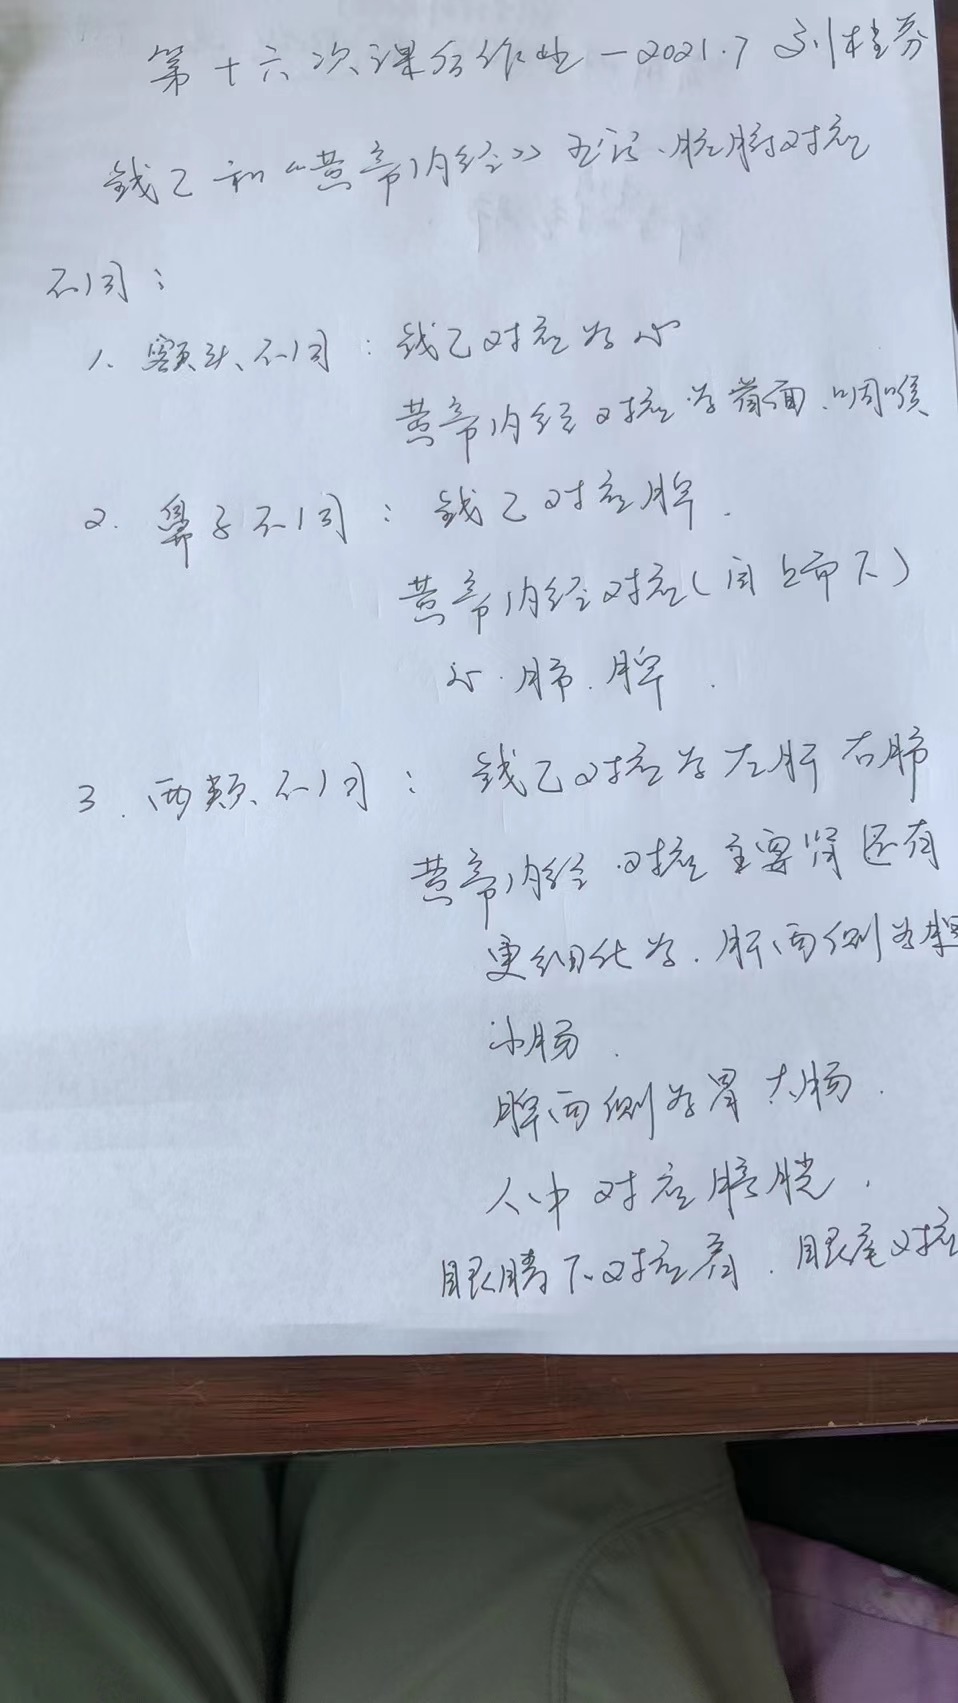 第十六次课后作业—2021.7 刘桂芬
钱乙和《黄帝内经》五官、脏腑对应
不同：
1、额头不同：钱乙对应为心
黄帝内经对应为首面、咽喉
2. 鼻子不同：钱乙对应脾.
黄帝内经对应(自上而下)
心.肺.脾.
3.两颊不同：钱乙对应为左肝右肺
黄帝内经对应主要肾还有
更细化为.肝两侧为胆
小肠.
脾两侧为胃大肠.
人中对应膀胱.
眼睛下对应.眼尾对应